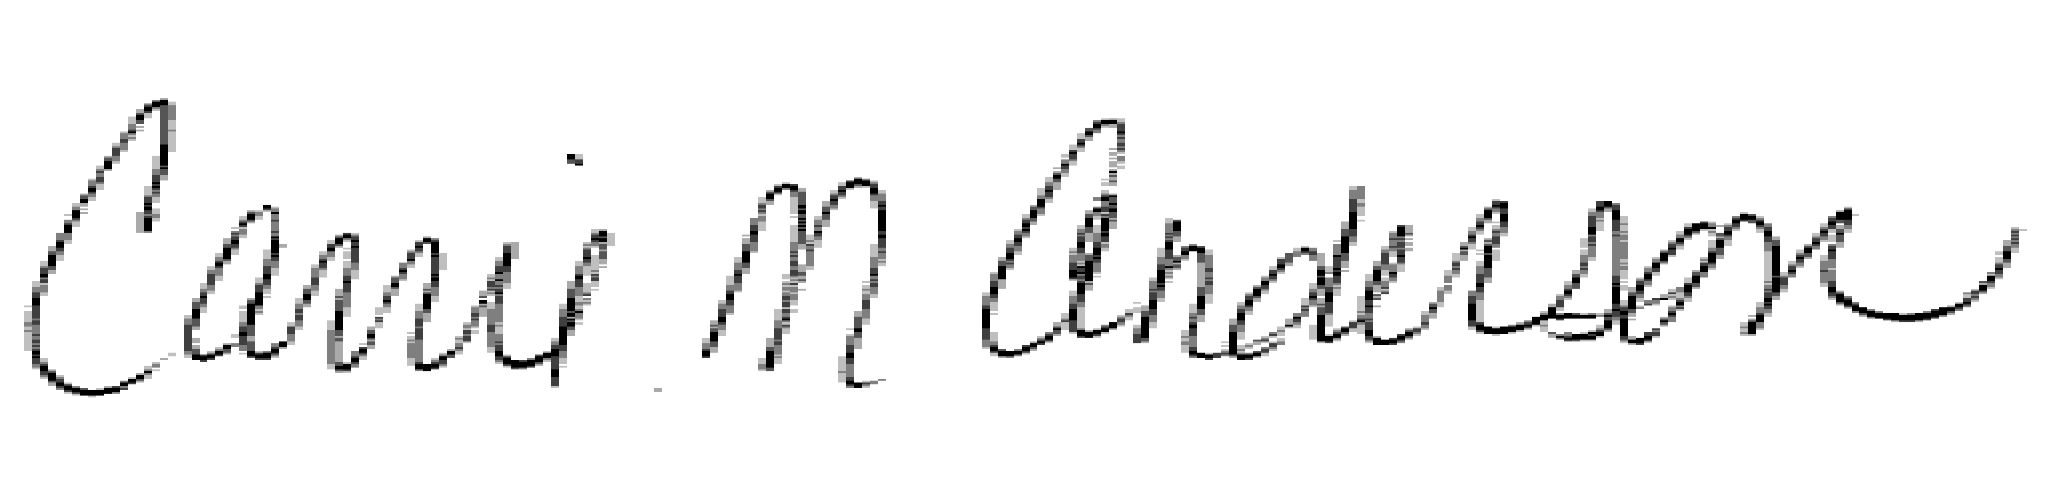 Carrie M Anderson